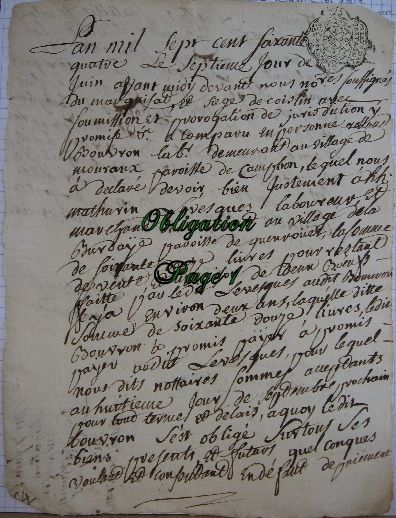 L'an mil sept cent soixante
quatre Le septieme Jour de
Juin avant midy devant nous nores soussignés
Du marquisat, et siege de coislin avec
soumission et prorogation de jurisdiction y
promise &. a comparu en personne
Bouvron lab. demeurant au village de
mouraux paroisse de Campbon, lequel nous
a declaré devoir bien justement à h.h.
mathurin Levesques laboureur et
marchand au village de la
paroisse de guenrouet, la somme
de soixante livres pour restant
de vente de deux
faitte par led. Levesques audit Bouvron
il y a environ deux ans, laquelle ditte
somme de soixante douze livres, ledit
Bouvron a promis payer à promis
payer audit Levesques, pour lequel
nous dits nottaires sommes acceptants
au huitieme Jour de septembre prochain
pour tout terme, et delais, a quoy ledit
bouvron s'est obligé sur tous ses
biens presents et futurs quelconques
voulant et consentant en defaut de paiement
Obligation
Page 1